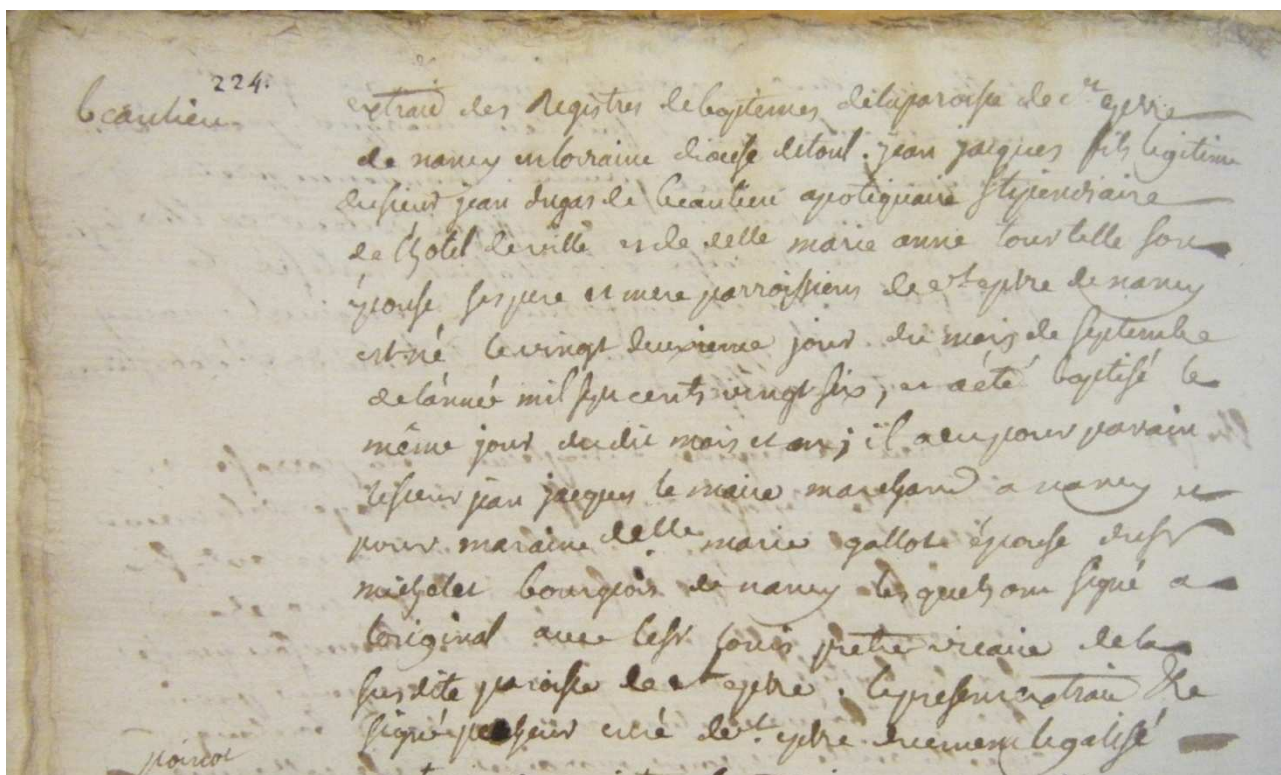 224.
beaulieu
extrait des Registres de baptemes de la paroisse de st epvre
de nancy en loraine diocese de toul. jean jacques fils legitime
du sieur jean dugas de beaulieu apotiquaire stipendiaire
de l'hotel de ville et de delle marie anne tourtelle son
épouse ses pere et mere parroissiens de st epvre de nancy
est né le vingt deuxieme jour du mois de septembre
de l'année mil sept cents vingt six, et a été baptisé le
même jour du dit mois et an; il a eu pour parain
le sieur jean jacques le maire marchand a nancy et
pour maraine delle marie gallot épouse du sr
michelet bourgeois de nancy les quels ont signé a
l'original avec le sr louis pretre vicaire de la
susdite paroisse de st epvre. le present extrait
signé curé de st epvre. duement legalisé
poirot